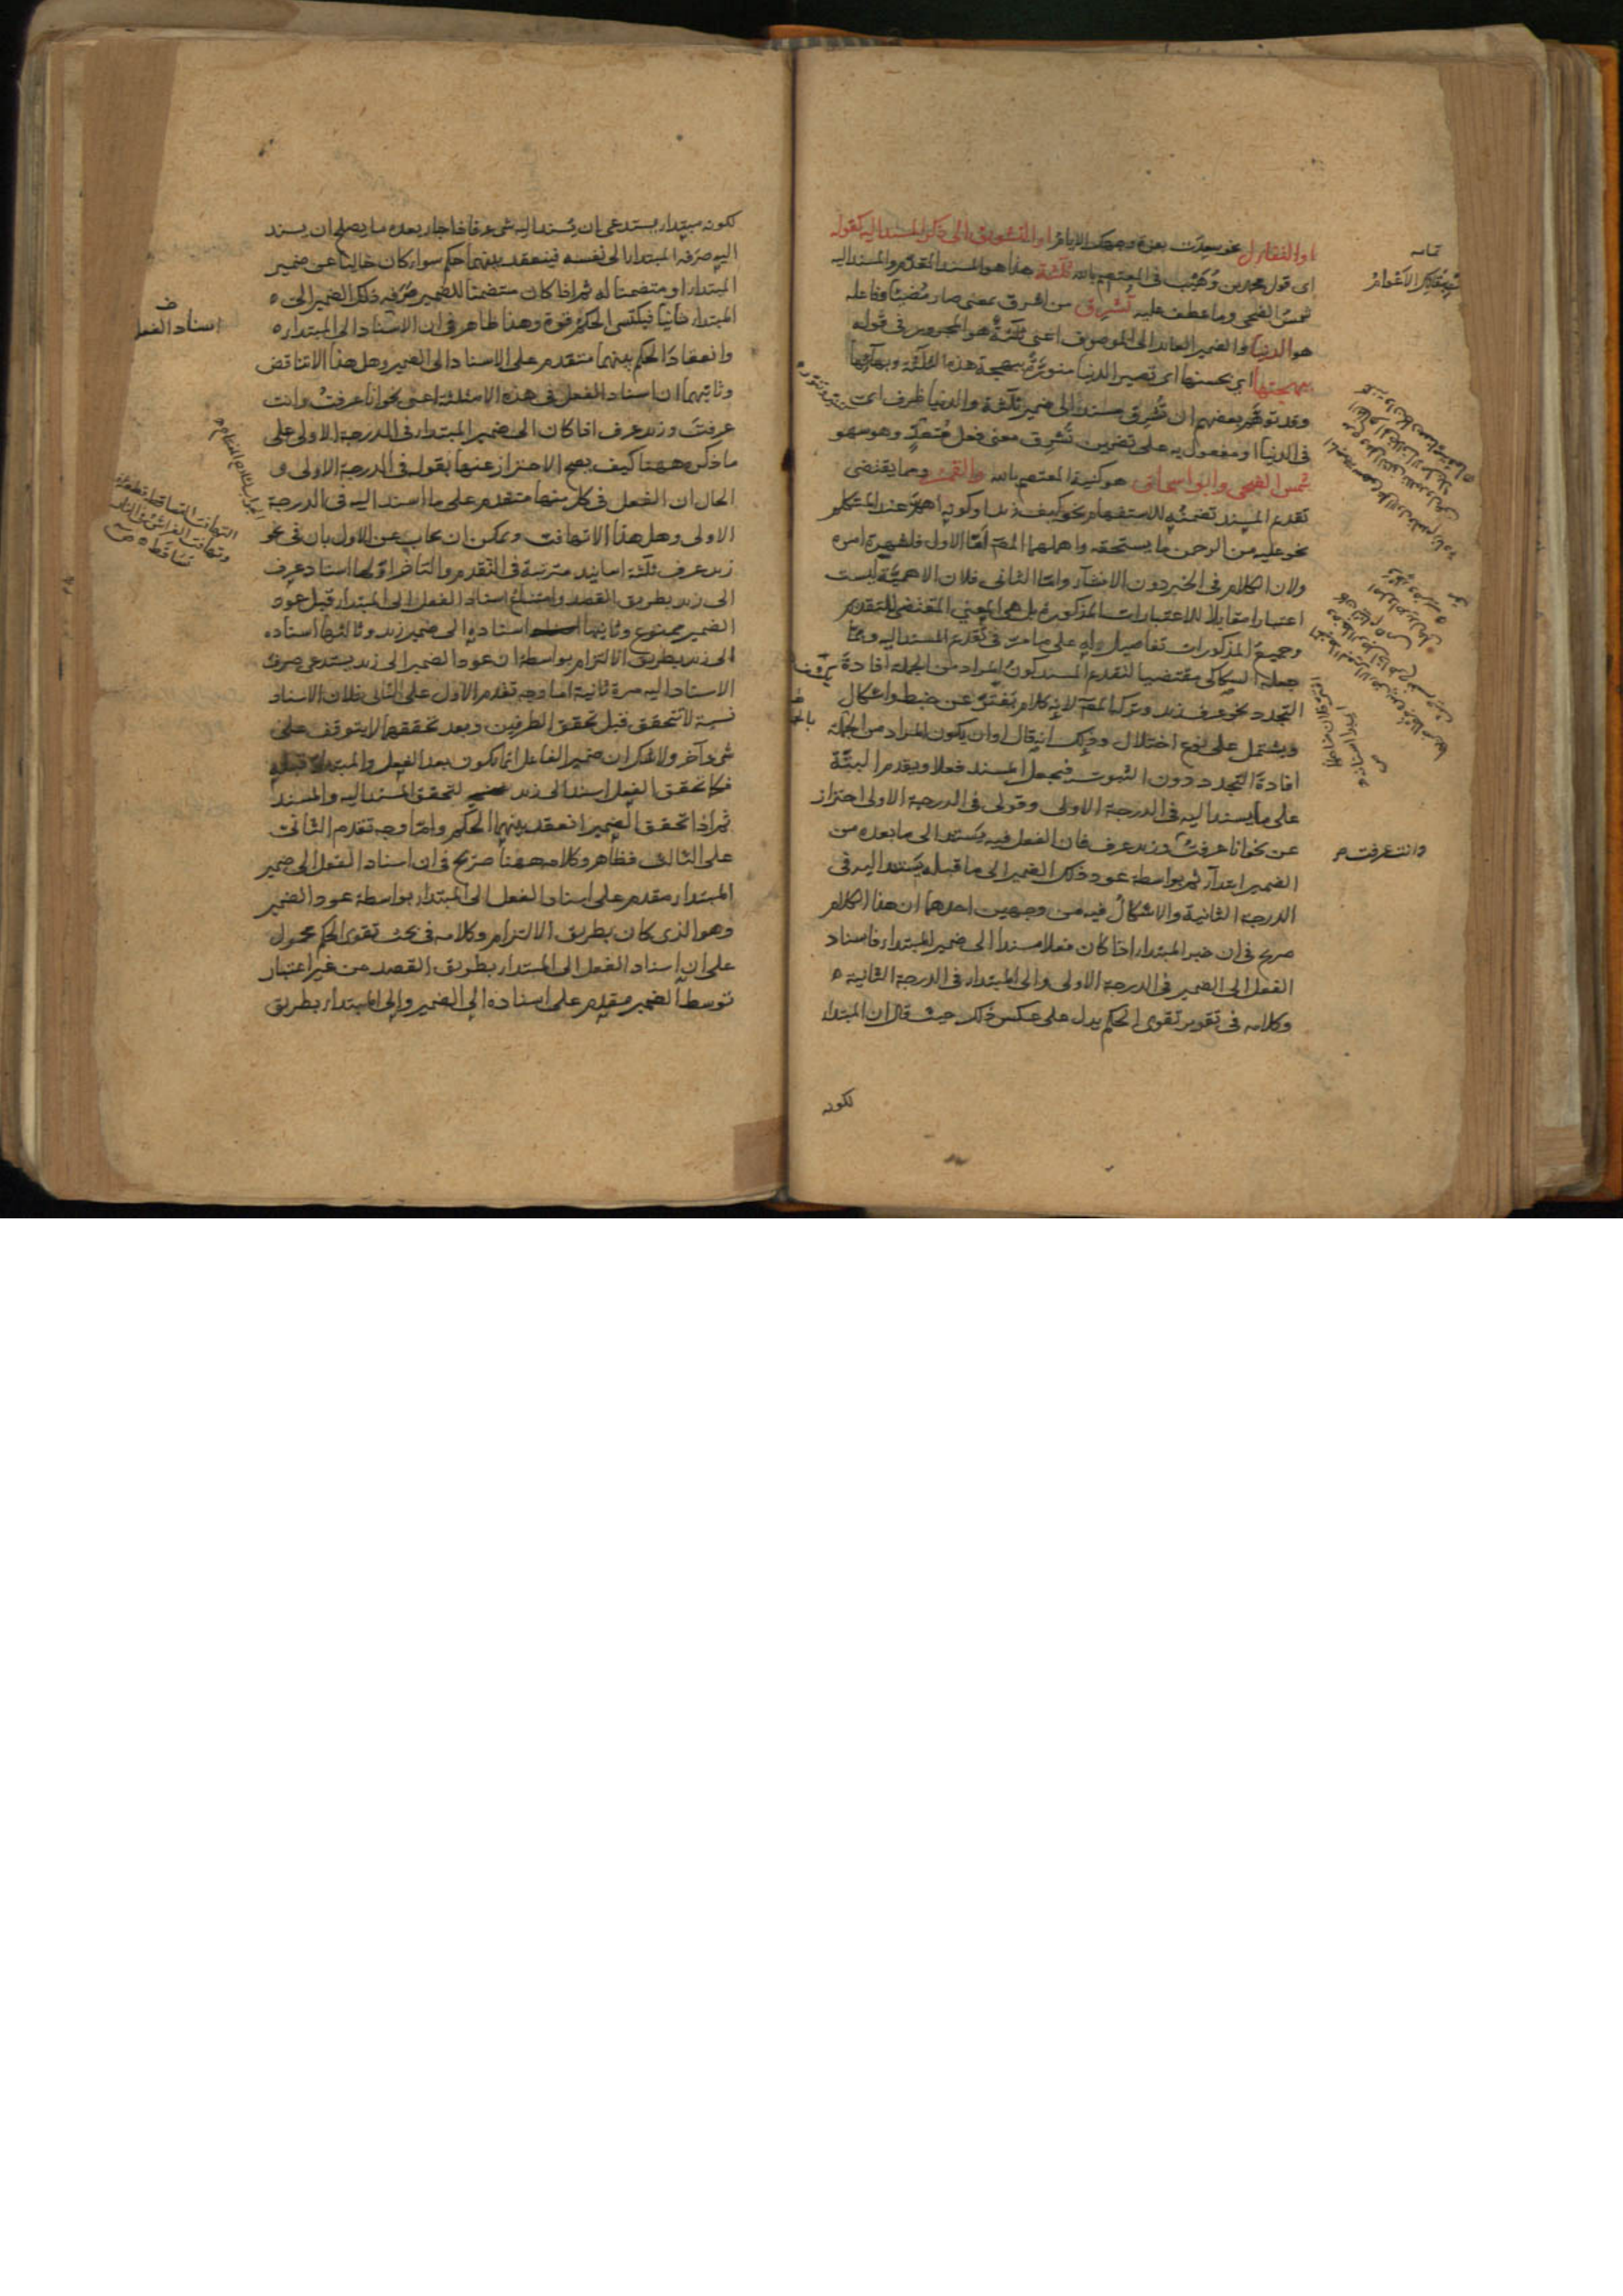 او التفاؤل نحو سعدت بغرة وجهك الايام او التشويق الى ذكر المسند اليه كقوله
اى قول محمد بن وهيب فى المعتصم بالله ثلثة هذا هو المسند المقدم والمسند اليه
شمس الضحى وما عطف عليه تشرق من اشرق بمعنى صار مضيئا وفاعله
هو الدنيا والضمير العائد الى الموصوف اعنى ثلثة هو المجرور فى قوله
ببهجتها اى بحسنها اى تصير الدنيا منورة ببهجة هذه الثلثة وبهائها
وقد توهم بعضهم ان تشرق مسند الى ضمير ثلثة والدنيا ظرف اى
فى الدنيا او مفعول به على تضمين تشرق معنى فعل متعد وهو سهو
شمس الضحى وابو اسحاق هو كنية المعتصم بالله والقمر ومما يقتضى
تقديم المسند تضمنه للاستفهام نحو كيف زيد او كونه اهم عند المتكلم
نحو عليه من الرحمن ما يستحقه واهملهما المص اما الاول فلشهرة امره
ولان الكلام فى الخبر دون الانشاء واما الثانى فلان الاهمية ليست
اعتبارا مقابلا للاعتبارات المذكورة بل هى المعنى المقتضى للتقديم
وجميع المذكورات تفاصيل له على ما مر فى تقديم المسند اليه ومما
جعله السكاكى مقتضيا لتقديم المسند كون المراد من الجملة افادة
التجدد نحو عرف زيد وتركه المص لانه كلام تفتق عن ضبط واشكال
ويشتمل على نوع اختلال وذلك انه قال او ان يكون المراد من الجملة
افادة التجدد دون الثبوت فيجعل المسند فعلا ويقدم البتة
على ما يسند اليه فى الدرجة الاولى وقولى فى الدرجة الاولى احتراز
عن نحو انا عرفت وزيد عرف فان الفعل فيه يستند الى ما بعده من
الضمير ابتدآء ثم بواسطة عود ذلك الضمير الى ما قبله يستند اليه فى
الدرجة الثانية والاشكال فيه من وجهين احدهما ان هذا الكلام
صريح فى ان خبر المبتدا اذا كان فعلا مسندا الى ضمير المبتداء فاسناد
الفعل الى الضمير فى الدرجة الاولى والى المبتداء فى الدرجة الثانية
وكلامه فى تقرير تقوى الحكم يدل على عكس ذلك حيث قال ان المبتداء
لكونه
تمامه
وانت عرفت
لكونه مبتداء يستدعى ان يسند اليه شى ء فاذا جاء بعده ما يصلح ان يسند
اليه صرفه المبتداء الى نفسه فينعقد بينهما حكم سواء كان خاليا عن ضمير
المبتداء او متضمنا له ثم اذا كان متضمنا للضمير صرفه ذلك الضمير الى
المبتداء ثانيا فيكتسى الحكم قوة وهذا ظاهر فى ان الاسناد الى المبتداء
وانعقاد الحكم بينهما متقدم على الاسناد الى الضمير وهل هذا الا تناقض
وثانيهما ان اسناد الفعل فى هذه الامثلة اعنى نحو انا عرفت وانت
عرفت وزيد عرف اذا كان الى ضمير المبتداء فى الدرجة الاولى على
ما ذكره ههنا كيف يصح الاحتراز عنها بقوله فى الدرجة الاولى و
الحال ان الفعل فى كل منها متقدم على ما اسند اليه فى الدرجة
الاولى وهل هذا الا تهافت ويمكن ان يجاب عن الاول بان فى نحو
زيد عرف ثلثة اسانيد مترتبة فى التقدم والتأخر اولها اسناد عرف
الى زيد بطريق القصد وامتناع اسناد الفعل الى المبتداء قبل عود
الضمير ممنوع وثانيها اسناده الى ضمير زيد وثالثها اسناده
الى زيد بطريق الالتزام بواسطة ان عود الضمير الى زيد يستدعى صرف
الاسناد اليه مرة ثانية اما وجه تقدم الاول على الثانى فلان الاسناد
نسبة لا تتحقق قبل تحقق الطرفين وبعد تحققهما لا يتوقف على
شى ء آخر ولا شك ان ضمير الفاعل انما يكون بعد الفعل والمبتداء قبله
فكما تحقق الفعل اسند الى زيد لتحقق المسند اليه والمسند
ثم اذا تحقق الضمير انعقد بينهما الحكم واما وجه تقدم الثانى
على الثالث فظاهر وكلامه ههنا صريح فى ان اسناد الفعل الى ضمير
المبتداء مقدم على اسناد الفعل الى المبتداء بواسطة عود الضمير
وهو الذى كان بطريق الالتزام وكلامه فى بحث تقوى الحكم محمول
على ان اسناد الفعل الى المبتداء بطريق القصد من غير اعتبار
توسط الضمير مقدم على اسناده الى الضمير والى المبتداء بطريق
اسناد الفعل
التهافت التساقط قطعة